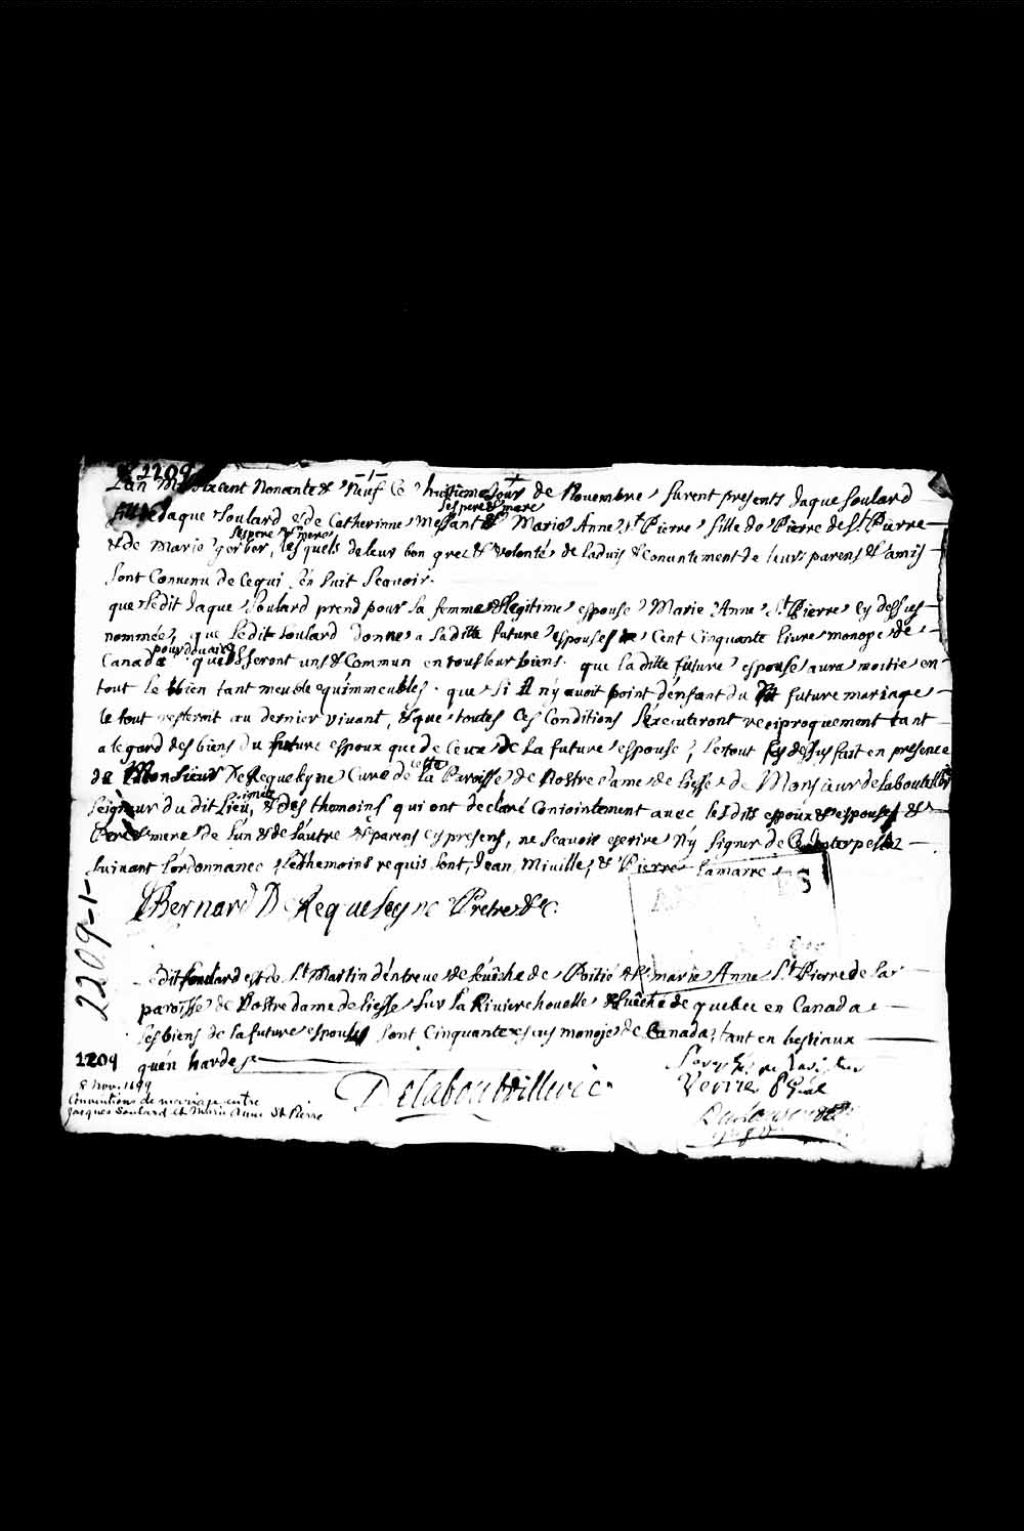 2209
Lan Mil sixcent Nonante & Neuf Ce huitieme Jour de Novembre furent presents Jaque Soulard
ses pere & mere
fills de Jaque Soulard & de Catherinne Messant & Marie Anne St Pierre fille de Pierre de St. Pierre
ses pere & mere
& de Marie gerber, lesquels de leur bon gre & volonté de laduis & Consentement de leurs parens & amis
sont Convenu de Cequi en suit Scavoir.
que Ledit Jaque Soulard prend pour sa femme & legitime espouse Marie Anne St Pierre cy dessus
nommée, que Ledit Soulard donne a sa ditte future espouse Cent Cinquante livre monoye de
pour douaire
Canada. quils seront uns & Commun en tous leur biens. que la ditte future espouse aura moitie en
tout le bien tant meuble quimmeubles. que si il n'y auoit point d'enfant du futture mariage
le tout resteroit au dernier vivant, & que toutes Ces Conditions Sexecuteront reciproquement tant
a legard des biens du future espoux que de Ceux de la future espouse, le tout cy dessus fait en presence
cette
de Monsieur De Requeleyne Cure de la Paroisse de Nostre dame de liesse & de Monsieur de Laboutellerie
Seigneur du dit Lieu, & des themoins qui ont declaré Conjointement avec lesdits espoux & espouse &
Pere & mere de l'un & de l'autre & parens cy presens, ne scavoir escrire n'y signer de Ce Interpellez
suivant l'ordonnance, les themoins requis sont, Jean Miuille, & Pierre Lamarre
Bernard De Requeleyne Pretre &c.
Ledit Soulard est de St Martin d'entreue de seuêche de Poitié & marie Anne St Pierre de la
paroisse de Nostre dame de liesse sur la Riviere houelle Eueiche de quebec en Canada
Les biens de la future espouse sont Cinquante escus monoye de Canada, tant en bestiaux
quén hardes
De Laboutteillerie
2209-1-
2209
8 Nov. 1699
Conventions de mariage entre
Jacques Soulard et Marie Anne St Pierre